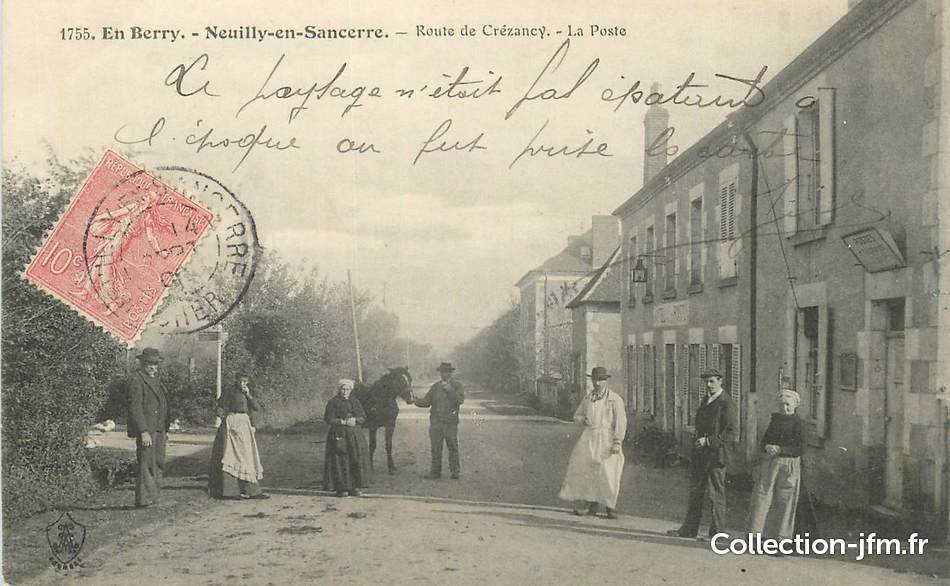 1755. En Berry. - Neuilly-en-Sancerre. — Route de Crézancy. - La Poste
Le paysage n'était pas épatant à
l'époque où fut prise la carte
REPUBLIQUE FRANÇAISE
10c
POSTES
SANCERRE
14
CHER
POSTES
Collection-jfm.fr